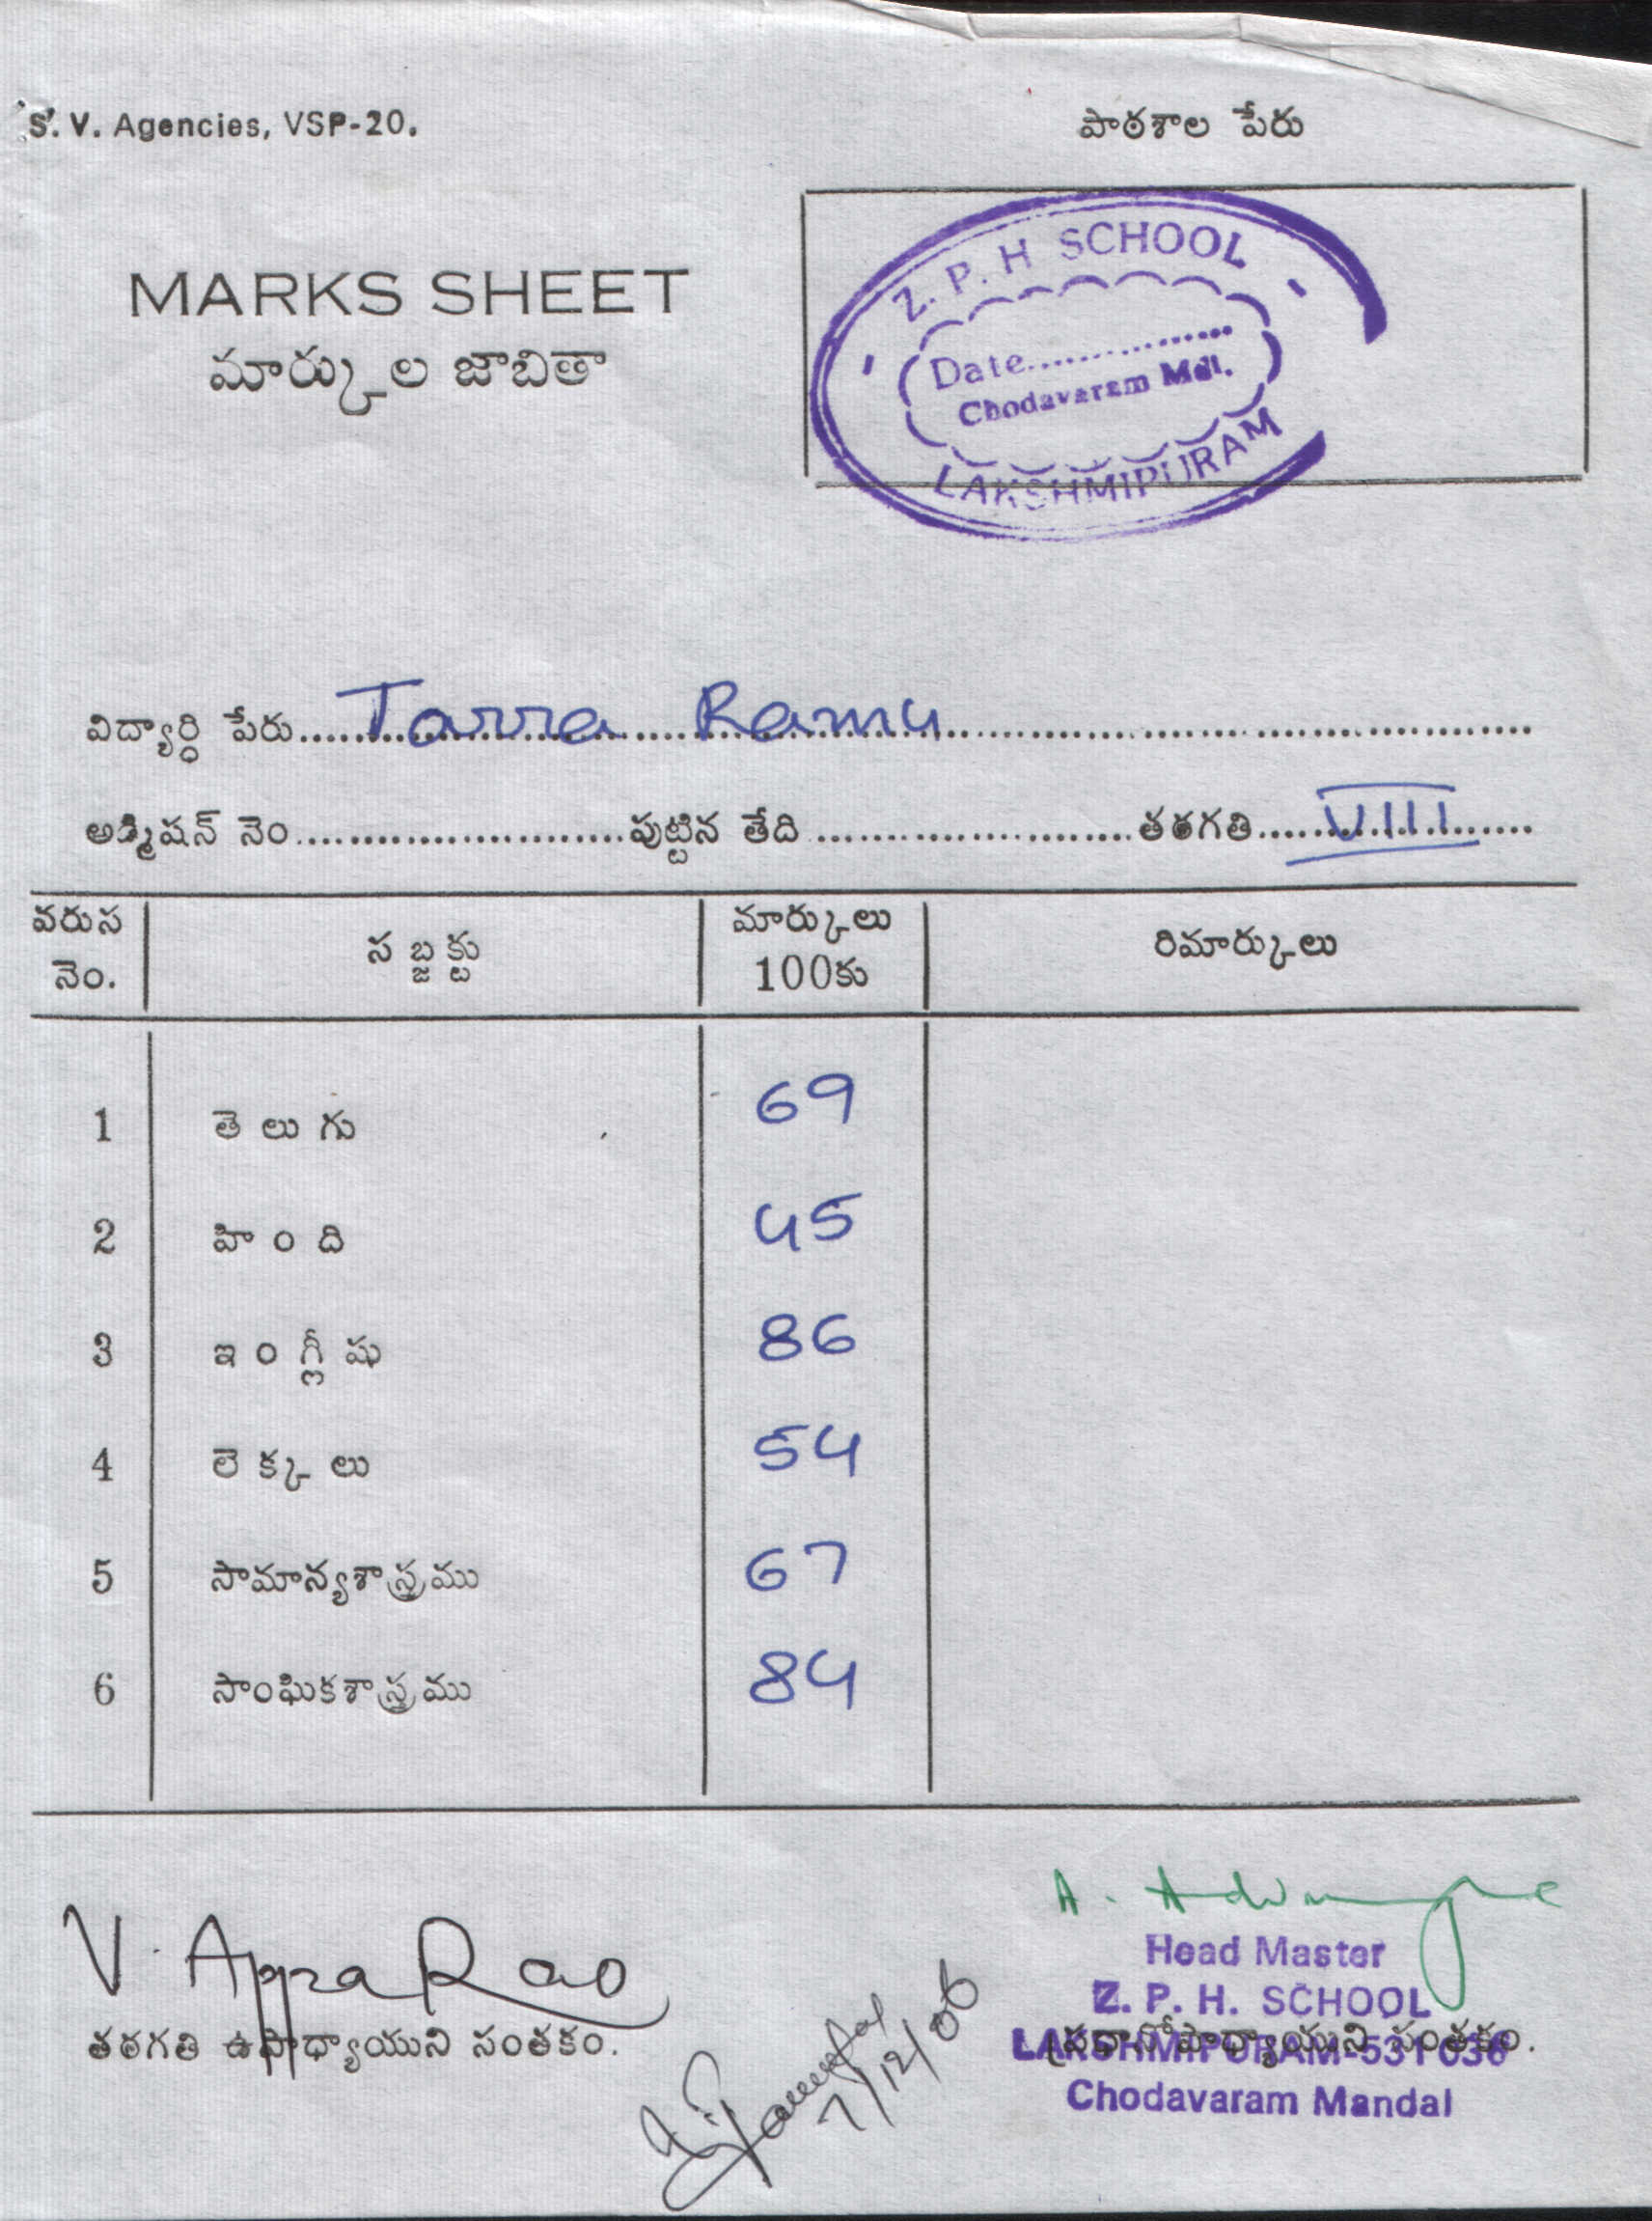 S. V. Agencies, VSP-20.
పాఠశాల పేరు
MARKS SHEET
మార్కుల జాబితా
Z. P. H SCHOOL
Date................
Chodavaram Mdl.
LAKSHMIPURAM
విద్యార్థి పేరు..... Tarra Ramu
అడ్మిషన్ నెం........................పుట్టిన తేది.......................తరగతి..... VIII
వరుస నెం. సబ్జక్టు మార్కులు 100కు రిమార్కులు
1 తెలుగు 69
2 హింది 45
3 ఇంగ్లీషు 86
4 లెక్కలు 54
5 సామాన్యశాస్త్రము 67
6 సాంఘికశాస్త్రము 84
V. Appa Rao
తరగతి ఉపాధ్యాయుని సంతకం.
7/12/06
Head Master
Z. P. H. SCHOOL
LAKSHMIPURAM-531 036
ప్రధానోపాధ్యాయుని సంతకం.
Chodavaram Mandal